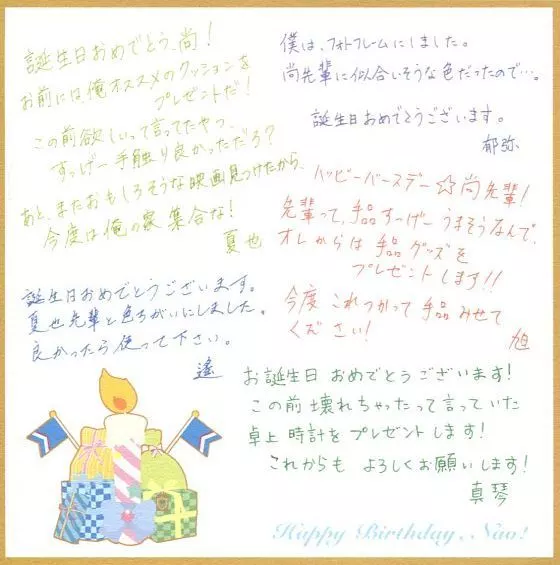 誕生日おめでとう、尚!
お前には俺オススメのクッションを
プレゼントだ!
この前欲しいって言ってたやつ、
すっげー手触り良かっただろ?
あと、またおもしろそうな映画見つけたから、
今度は俺の家集合な!
夏也
僕は、フォトフレームにしました。
尚先輩に似合いそうな色だったので…。
誕生日おめでとうございます。
郁弥
ハッピーバースデー☆尚先輩!
先輩って、手品すっげーうまそうなんで、
オレからは手品グッズを
プレゼントします!!
今度これつかって手品みせて
ください!
旭
誕生日おめでとうございます。
夏也先輩と色ちがいにしました。
良かったら使って下さい。
遙
お誕生日おめでとうございます!
この前壊れちゃったって言っていた
卓上時計をプレゼントします!
これからもよろしくお願いします!
真琴
Happy Birthday, Nao!